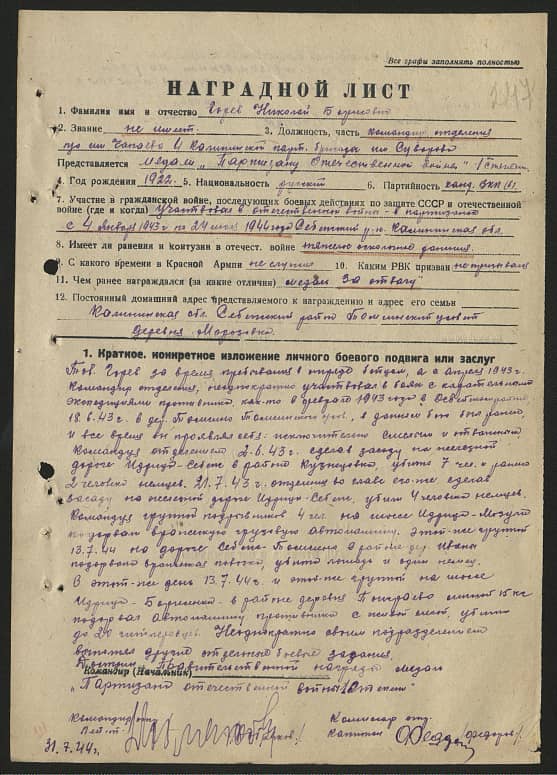 Все графы заполнять полностью
247
НАГРАДНОЙ ЛИСТ
1. Фамилия имя и отчество Горев Николай Борисович
2. Звание не имеет. 3. Должность, часть командир отделения
п/о им Чапаева 4 Калининской парт. бригады им Суворова
Представляется медали „Партизану Отечественной войны" I степени
4. Год рождения 1922. 5. Национальность русский 6. Партийность канд. ВКП(б).
7. Участие в гражданской войне, последующих боевых действиях по защите СССР и отечественной
войне (где и когда) Участвовал в отечественной войны в партизанах
с 4 января 1943 г по 24 июля 1944 года Себежский р-н. Калининская обл.
8. Имеет ли ранения и контузии в отечест. войне тяжело
9. С какого времени в Красной Армии не служил 10. Каким РВК призван не призывался
11. Чем ранее награждался (за какие отличия) медаль „За отвагу"
12. Постоянный домашний адрес представляемого к награждению и адрес его семьи
Калининская обл. Себежский район Томсинский с/совет
деревня
1. Краткое, конкретное изложение личного боевого подвига или заслуг
Тов. Горев за время пребывания в отряде бойцом, а с апреля 1943 г.
Командир отделения, неоднократно участвовал в боях с карательными
экспедициями противника, как-то в феврале 1943 года в
18.6.43 г. в дер. Томсино Томсинского с/сов, в данном бою был ранен
и все время он проявлял себя исключительно смелым и отважным
Командуя отделением 2.6.43 г. сделав засаду на железной
дороге Идрица-Себеж в районе Кузнецовка, убито 7 чел. и ранено
2 человека немцев. 21.7.43 г. отделение во главе его-же, сделав
засаду на железной дороге Идрица-Себеж, убили 4 человека немцев.
Командуя группой подрывников 4 чел. на шоссе Идрица-
подорвал вражескую грузовую автомашину. Этой-же группой
13.7.44 на дороге Себеж-Томсино в районе дер. Иваны
подорвана вражеская повозка, убита лошадь и один немец.
В этот-же день 13.7.44 г. и этой-же группой на шоссе
Идрица - в районе деревня миной 15 кг
подорвал автомашину противника с живой силой, убито
до 20 гитлеровцев. Неоднократно своим подразделением
выполнял другие отдельные боевые задания.
Достоин Правительственной награды медали
Командир (Начальник)
„Партизану отечественной войны" I степени"
Командир отр.
Лейт.
Комиссар отр.
капитан (Федоров)
31.7.44 г.